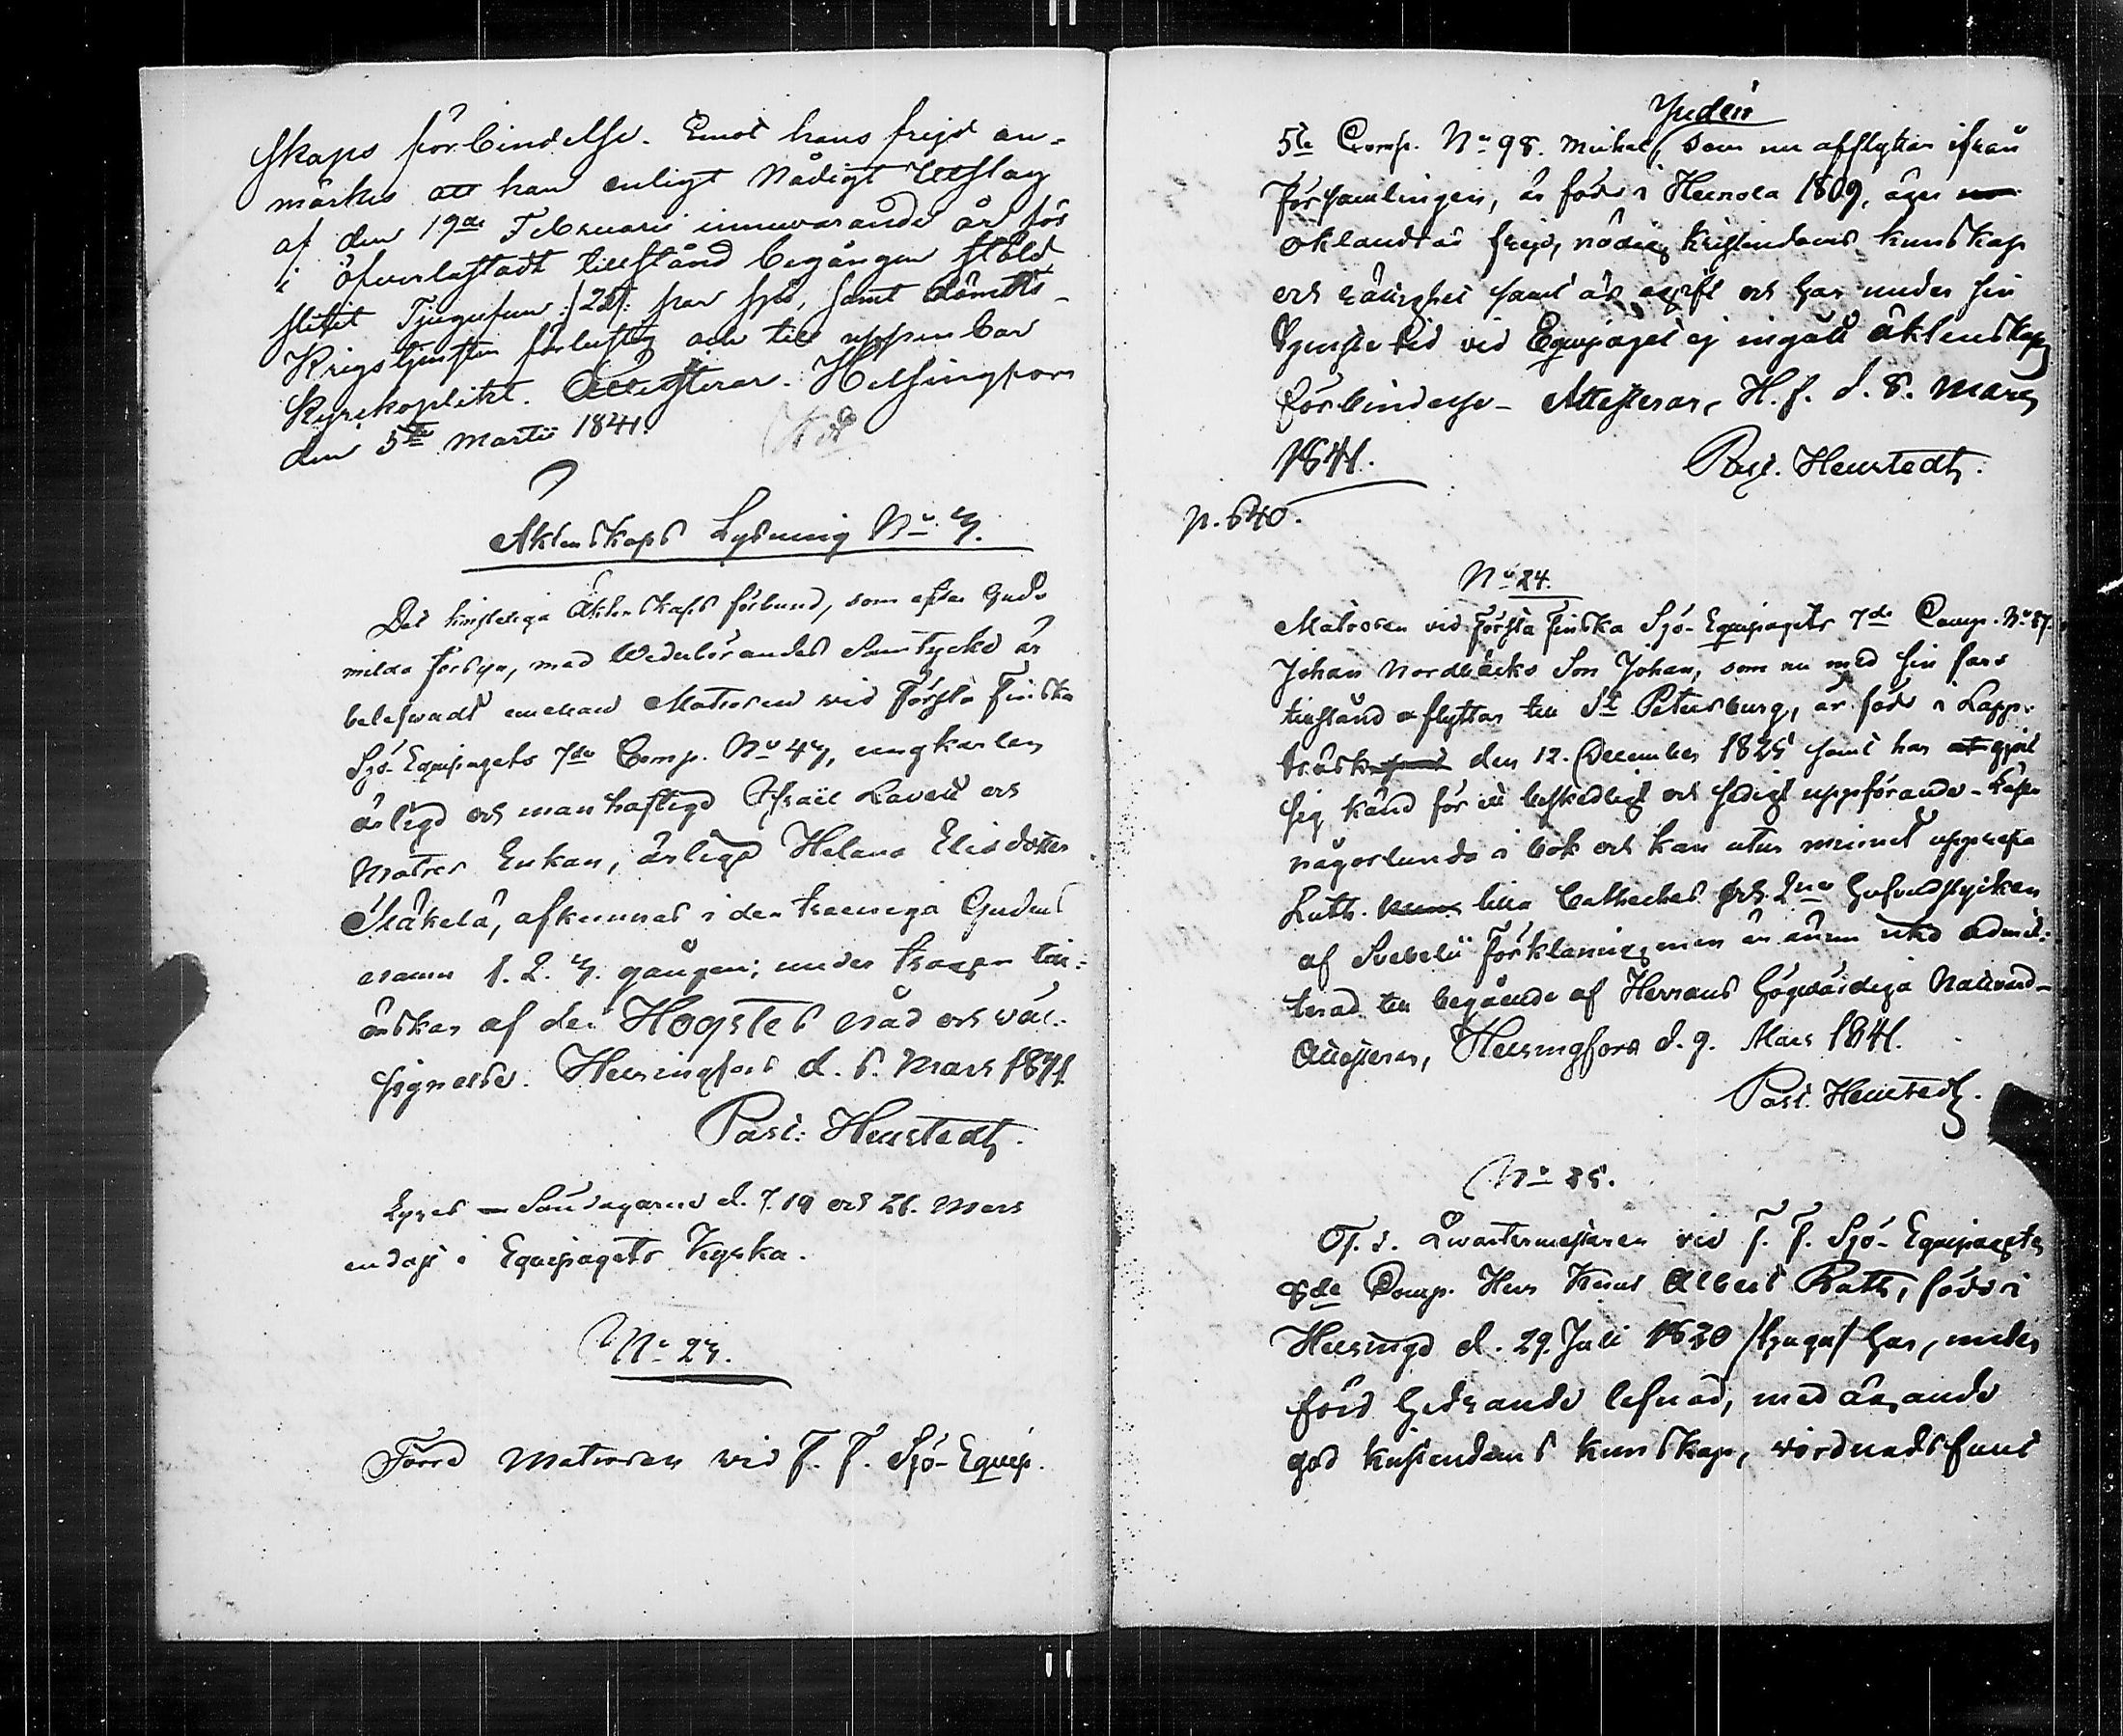 skaps förbindelse. Emot hans frejd an-
märkes att han enligt Nådigt Utslag
af den 19de Februarii innevarande år för
i öfverlastadt tillstånd begången stöld
slitit Tjugufem /:25:/ par spö, samt dömdts
Krigstjensten förlustig och till uppenbar
Kyrkoplikt. Attesterar. Helsingfors
den 5te Martii 1841.
Äktenskaps Lysning No 3.
Det kristeliga Äktenskaps förbund, som efter Guds
milda försyn, med Wederbörandes Samtycke är
beleswadt emellan Matrosen vid Första Finska
Sjö-Equipagets 7de Comp. No 43, ungkarlen
ärlige och manhaftige Israël Lavell och
Matros Enkan, ärliga Helena Elisdotter
afkunnas i den Treeniga Gudens
namn 1. 2. 3. gången;
önskas af den Högstes nåd och väl-
signelse. Helsingfors d. 6. Mars 1841
Past: Hellstedt.
Lyses Söndagarne d. 7. 14 och 21. Mars
endast i Equipagets Kyrka.
No 23.
Förre Matrosen vid F. F. Sjö-Equip.
Judén
5te Comp. No 98. Michel, som nu afflyttar ifrån
Församlingen, är född i Heinola 1809, äger
oklandrad frejd, nödig kristendoms kunskap
och är ogift och har under sin
tjenste tid vid Equipaget ej ingått äktenskaps
förbindelse - Attesterar, H. f. d. 8. Mars
1841. Past. Hellstedt.
p. 640.
No 24.
Matrosen vid Första Finska Sjö-Equipagets 7de Comp. No 87.
Johan Nordbäcks Son Johan, som nu med sin fars
tillstånd afflyttar till St Petersburg, är född i Lapp-
träsk den 12. December 1825 samt har gjort
sig känd för ett beskedligt och sedigt uppförande - Läser
någorlunda i bok och kan utur minnet upprepa
Luth. lilla Catheches och 2ne Hufvudstycken
af Svebelii Förklaring, men är ännu icke admit-
terad till begående af Herrans Högvärdiga Nattvard -
Attesterar, Helsingfors d. 9. Mars 1841.
Past. Hellstedt.
No 25.
Qvartermästaren vid F. F. Sjö-Equipagets
8de Comp. Herr Knut Albert Rath, född i
Helsinge d. 29. Juli 1820 /tjugu/ har, under
förd hedrande lefnad, med ägande
god kristendoms kunskap, vördnadsfullt